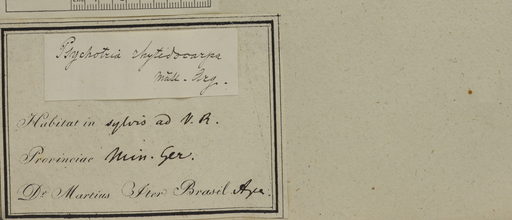 Psychotria rhytidocarpa
Müll. Arg.
Habitat in sylvis ad V. R.
Provinciae Min. Ger.
Dr. Martius Iter Brasil